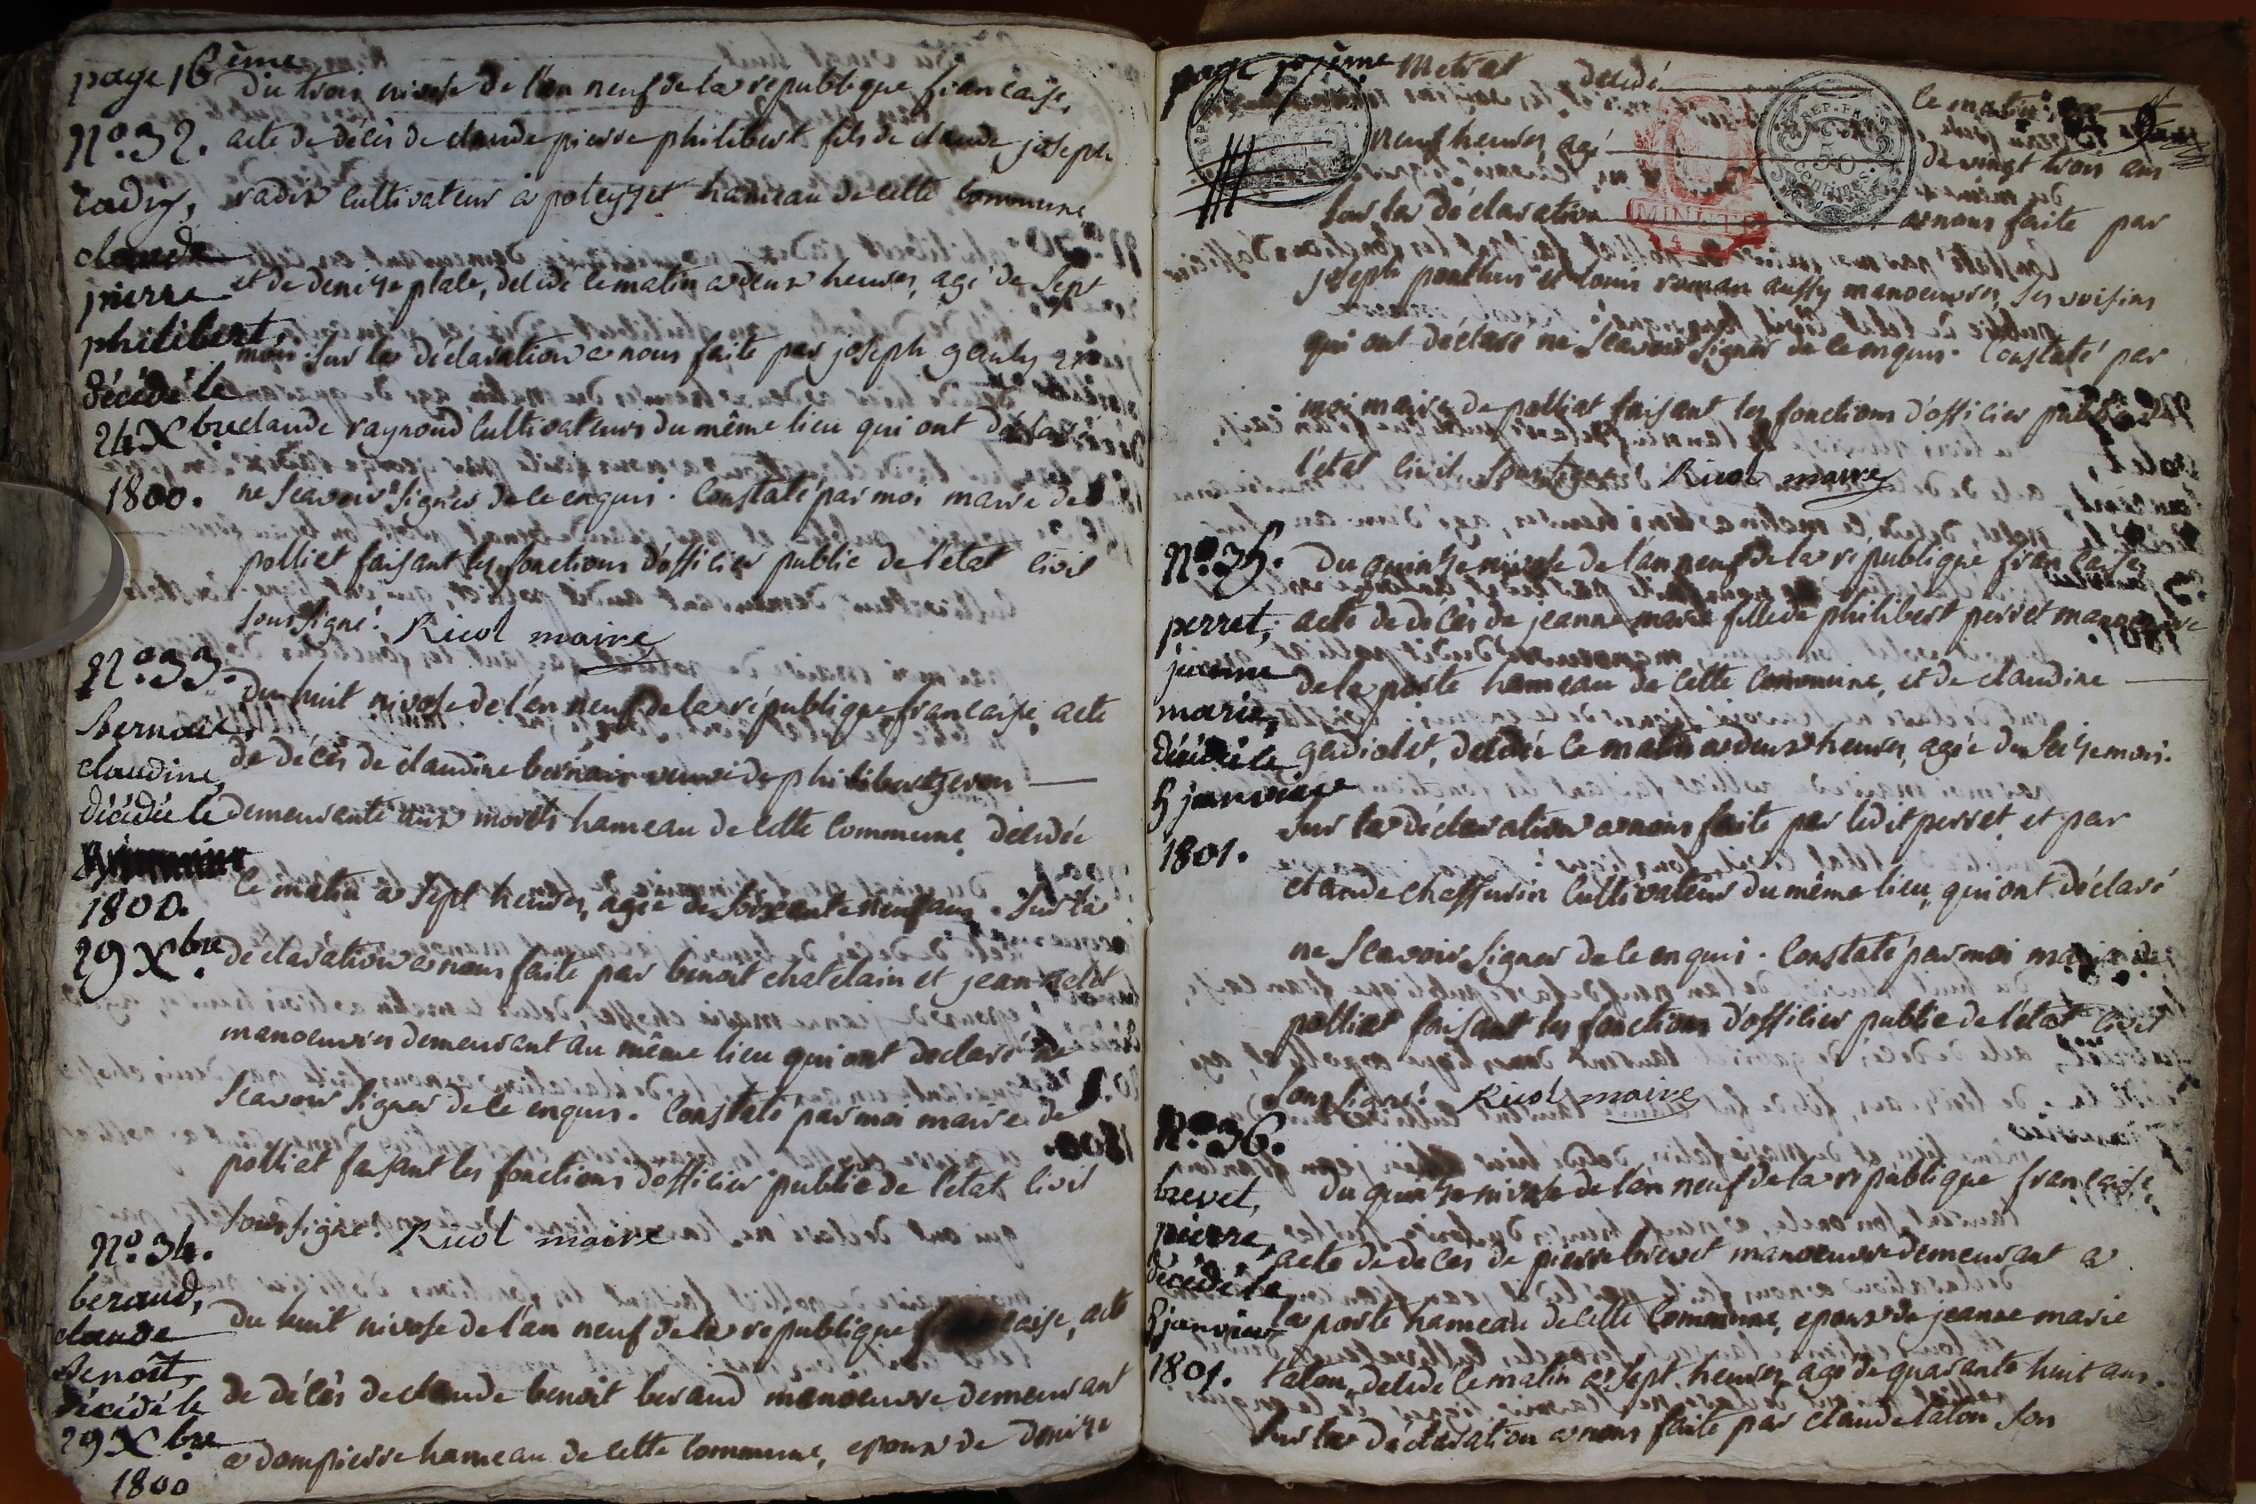 page 16ème
du trois nivose de l'an neuf de la republique francaise,
N.º 32. acte de décès de claude pierre philibert fils de claude joseph
radix, radix cultivateur a poleyzet hameau de cette commune
claude
pierre et de denize plate, décédé le matin a deux heures, agé de sept
philibert, mois. sur la déclaration a nous faite par joseph et
décédé le
24 Xbre claude raynoud cultivateurs du même lieu qui ont déclaré
1800. ne scavoir signer de ce enquis. Constaté par moi maire de
polliat faisant les fonctions d'officier public de l'état civil
soussigné. Ricol maire
N.º 33.
du huit nivose de l'an neuf de la république francaise, acte
bernard,
claudine, de décès de claudine veuve de philibert
décédée le demeurante aux monts hameau de cette commune, décédée
1800. le matin a sept heures, agée de soixante neuf ans. sur la
29 Xbre déclaration a nous faite par benoit chatelain et jean
manoeuvres demeurant au même lieu qui ont déclaré ne
scavoir signer de ce enquis. Constaté par moi maire de
polliat faisant les fonctions d'officier public de l'état civil
soussigné. Ricol maire
N.º 34.
beraud, du huit nivose de l'an neuf de la republique francaise, acte
claude
benoit, de décès de claude benoit beraud manoeuvre demeurant
décédé le
29 Xbre a dompierre hameau de cette commune, epoux de denize
1800
page 17ème Metrat décédé le matin a
neuf heures, agé de vingt trois ans
sur la déclaration a nous faite par
joseph ponthus et louis roman aussy manoeuvres, ses voisins
qui ont déclaré ne scavoir signer de ce enquis. Constaté par
moi maire de polliat faisant les fonctions d'officier public de
l'état civil soussigné. Ricol maire
N.º 35. du quinze nivose de l'an neuf de la république francaise,
perret, acte de décès de jeanne marie fille de philibert perret manoeuvre
jeanne de la poste hameau de cette commune, et de claudine
marie,
décédée le gadiolet, décédée le matin a deux heures, agée de seize mois.
5 janvier sur la déclaration a nous faite par ledit perret et par
1801.
claude cultivateur du même lieu, qui ont déclaré
ne scavoir signer de ce enquis. Constaté par moi maire de
polliat faisant les fonctions d'officier public de l'état civil
soussigné. Ricol maire
N.º 36.
brevet, du quinze nivose de l'an neuf de la république francaise,
pierre, acte de décès de pierre brevet manoeuvre demeurant a
décédé le
5 janvier la poste hameau de cette commune, epoux de jeanne marie
1801. talon, décédé le matin a sept heures, agé de quarante huit ans.
sur la déclaration a nous faite par claude talon son
REP. FRA.
50
centimes.